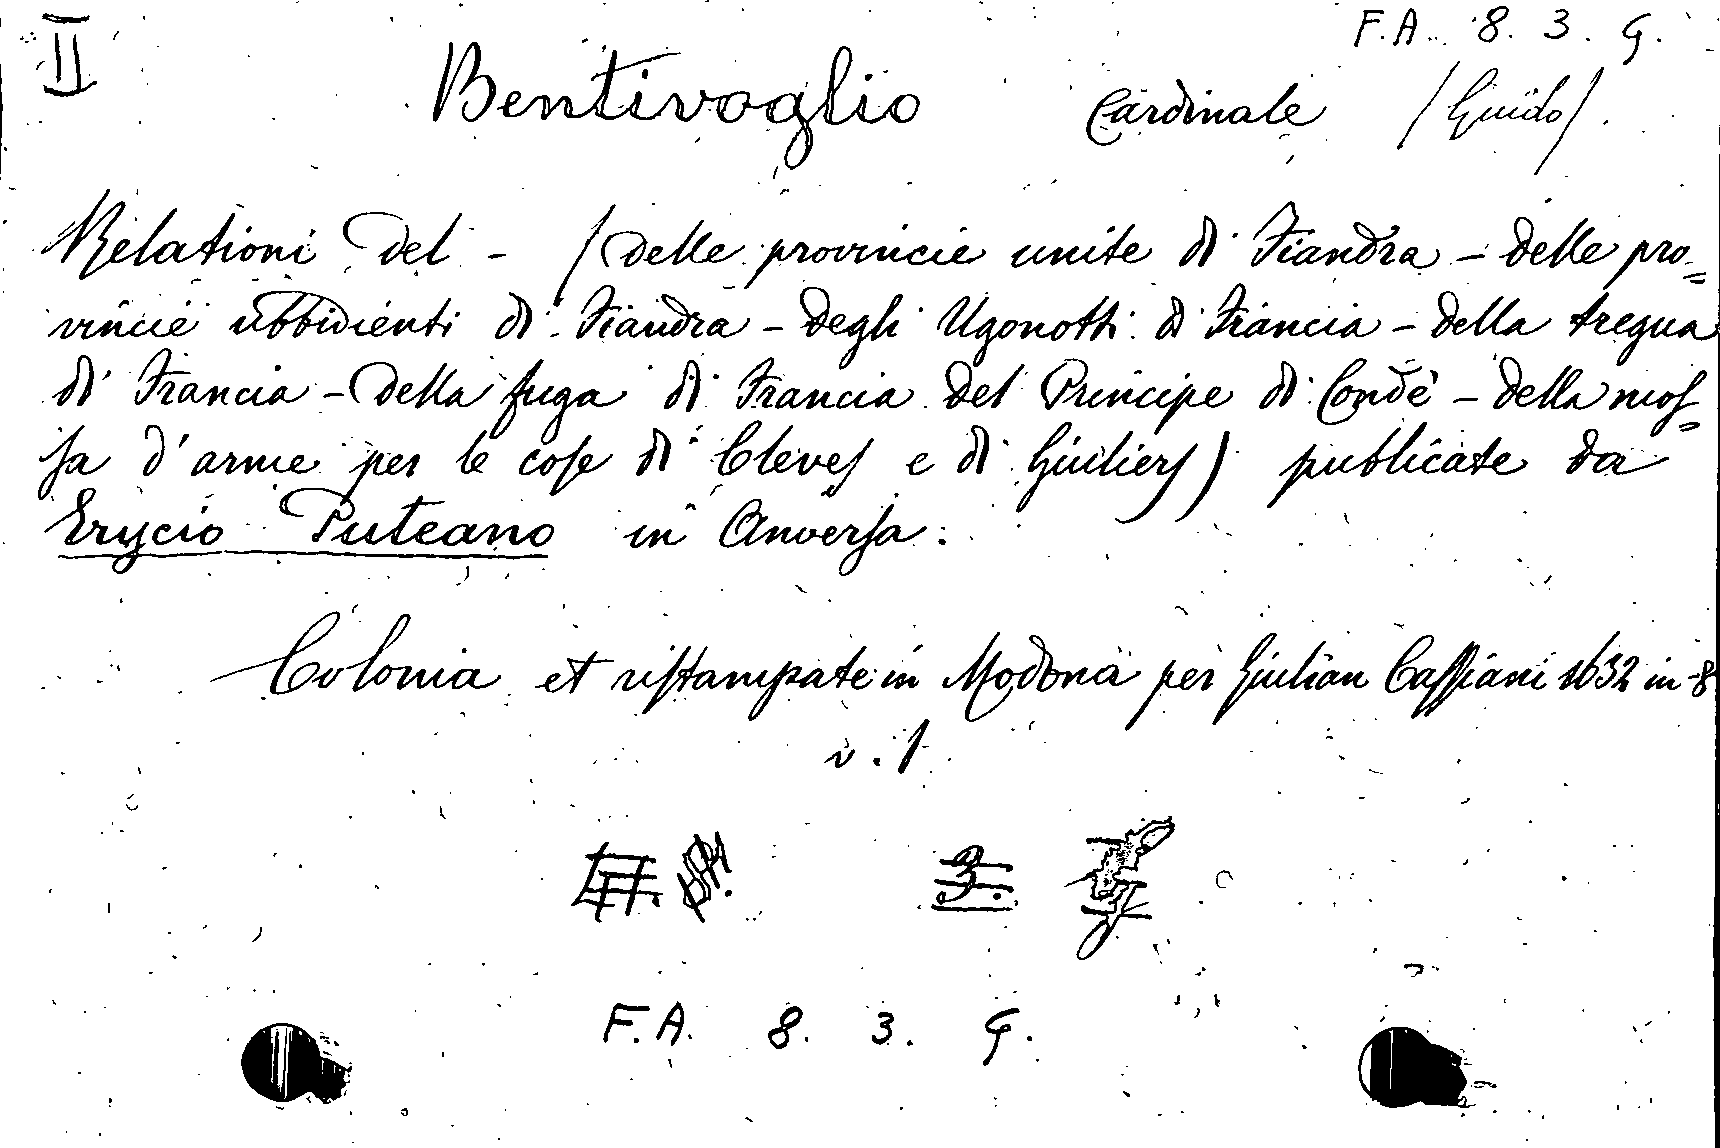 II
F.A. 8. 3. G.
Bentivoglio Cardinale /Guido/.
Relationi del - (delle provincie unite di Fiandra - delle pro=
vincie ubbidienti di Fiandra - degli Ugonotti di Francia - della tregua
di Francia - della fuga di Francia del Principe di Condè - della mos=
sa d'arme per le cose di Cleves e di Giuliers) publicate da
Erycio Puteano in Anversa:
Colonia et ristampate in Modona per Giulian Cassiani 1632 in-8
v. 1
3.
F.A. 8. 3. G.